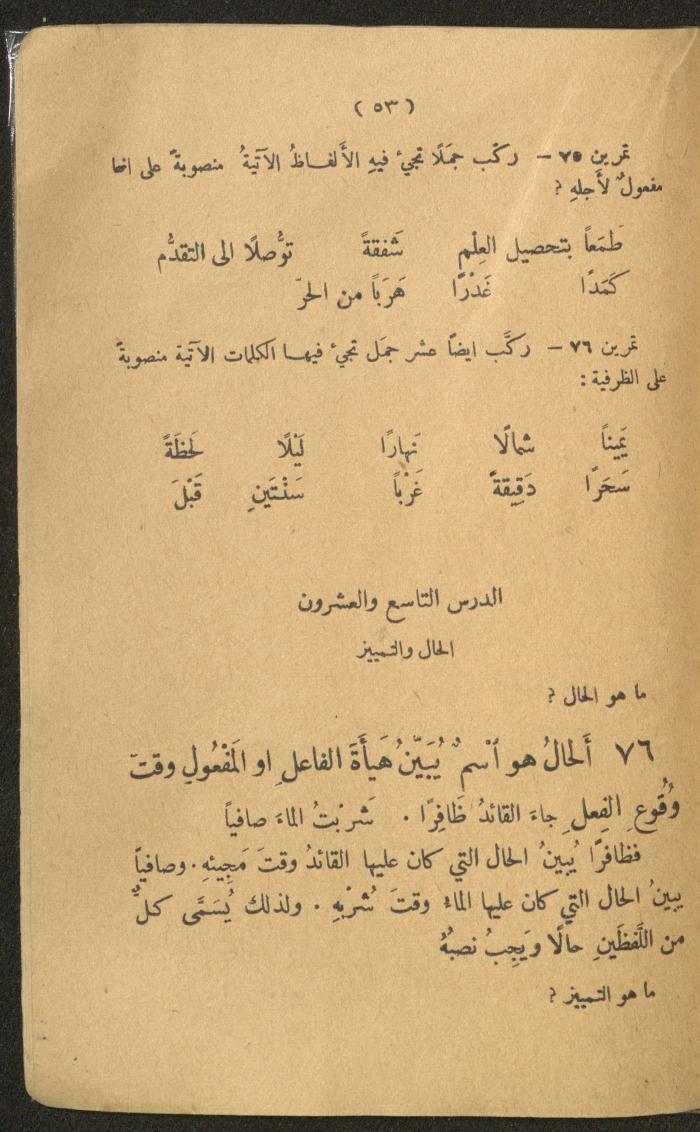 ( ٥٣ )
تمرين ٧٥ – ركّب جمَلًا تجيءُ فيهِ الأَلفاظُ الآتيةُ منصوبةً على انها
مفعولٌ لأَجلهِ ؟
طَمَعاً بتحصيل العِلْمِ شَفقةً توَُّصلًا الى التقدُّم
كَمَدًا غَدْرًا هَرَبَاً من الحرّ
تمرين ٧٦ – ركَّب ايضاً عشر جمَل تجيءُ فيهـا الكلمات الآتية منصوبةً
على الظرفية :
يَمِيناً شمالًا نَهارًا لَيْلًا لَحْظَةً
سَحَرًا دَقِيقةً غَرْباً سَنْتَينِ قَبْلَ
الدرس التاسع والعشرون
الحال والتمييز
ما هو الحال ؟
٧٦ أَلحالُ هو ٱسْمٌ يُبَيّنُ هَيأَةَ الفاعلِ او المَفْعُولِ وقتَ
وُقُوعِ الفِعلِ جاءَ القائدُ ظَافِرًا . شَربْتُ الماءَ صافياً
فظافرًا يُبينُ الحال التي كان عليها القائدُ وقتَ مَجِيئهِ . وصافياً
يبينُ الحال التي كان عليها الماءُ وقتَ شُرْبهِ . ولذلك يُسَمَّى كلٌّ
من اللَّفظَينِ حالًا ويَجِبُ نصبُهُ
ما هو التمييز ؟